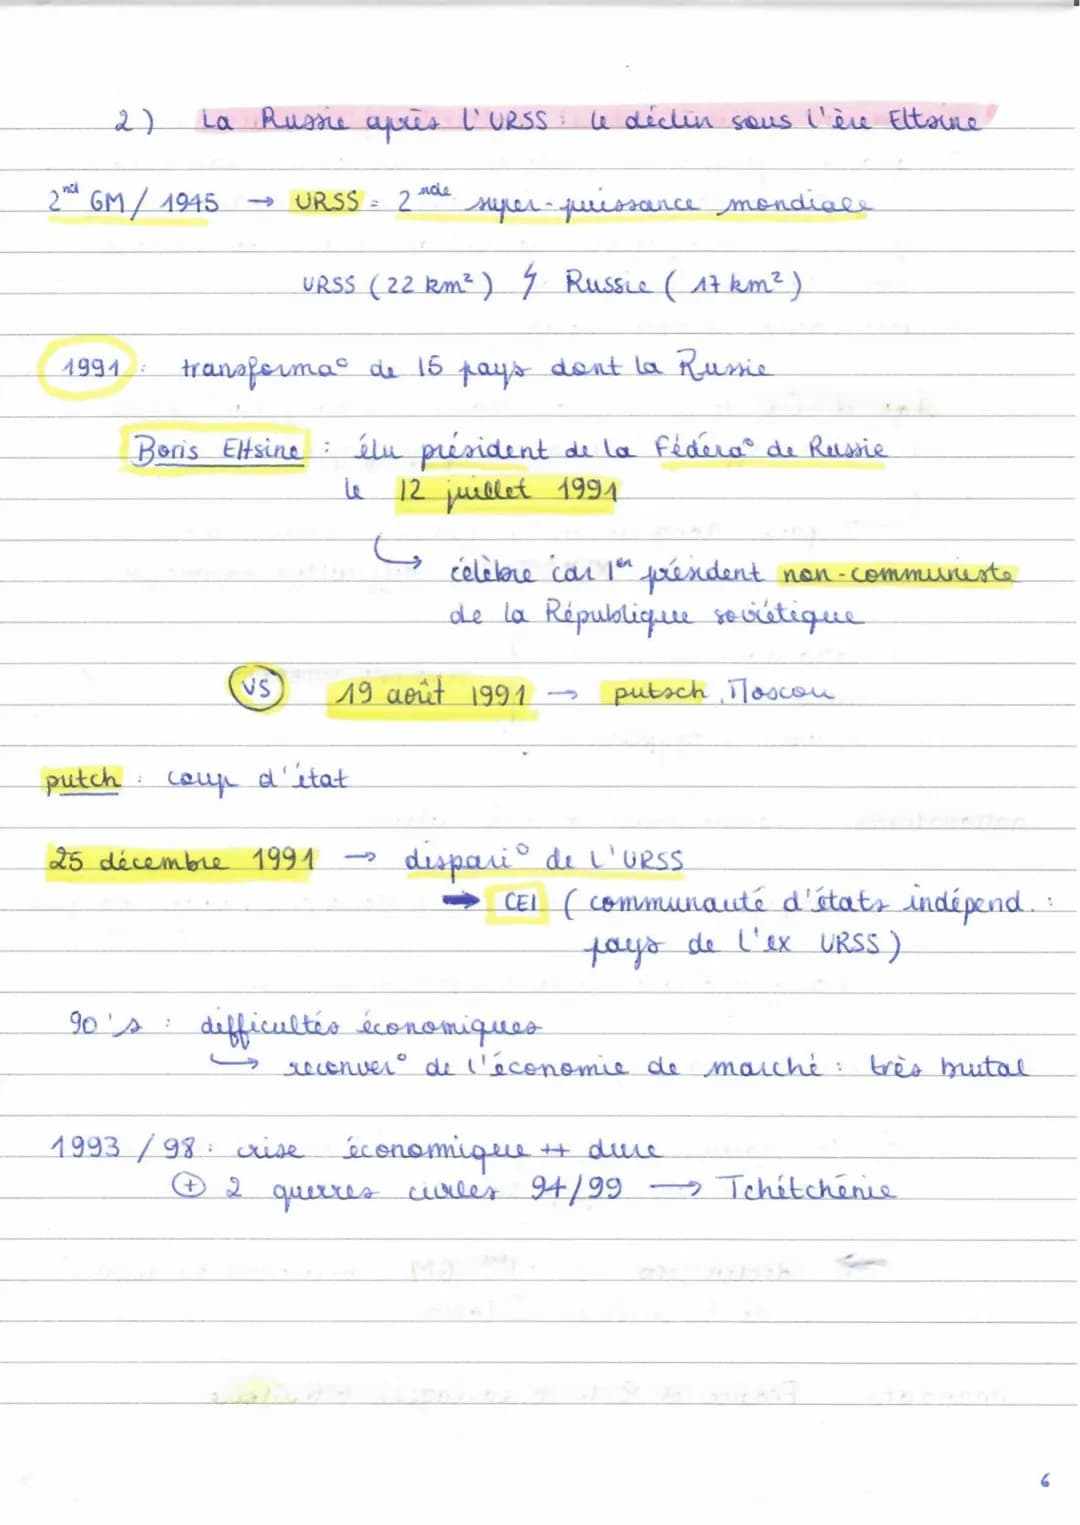 2) La Russie après l'URSS : le déclin sous l'ère Eltsine
2nd GM / 1945 → URSS = 2nde super-puissance mondiale
URSS (22 km²) ↯ Russie (17 km²)
1991 : transforma° de 15 pays dont la Russie
Boris Eltsine : élu président de la Fédéra° de Russie
le 12 juillet 1991
↳ célèbre car 1er président non-communiste
de la République soviétique
VS 19 août 1991 → putsch Moscou
putch : coup d'état
25 décembre 1991 → dispari° de l'URSS
➡ CEI (communauté d'états indépend. :
pays de l'ex URSS)
90's : difficultés économiques
↳ reconver° de l'économie de marché : très brutal
1993 / 98 : crise économique ++ dure
⊕ 2 guerres civiles 94/99 → Tchétchénie
6